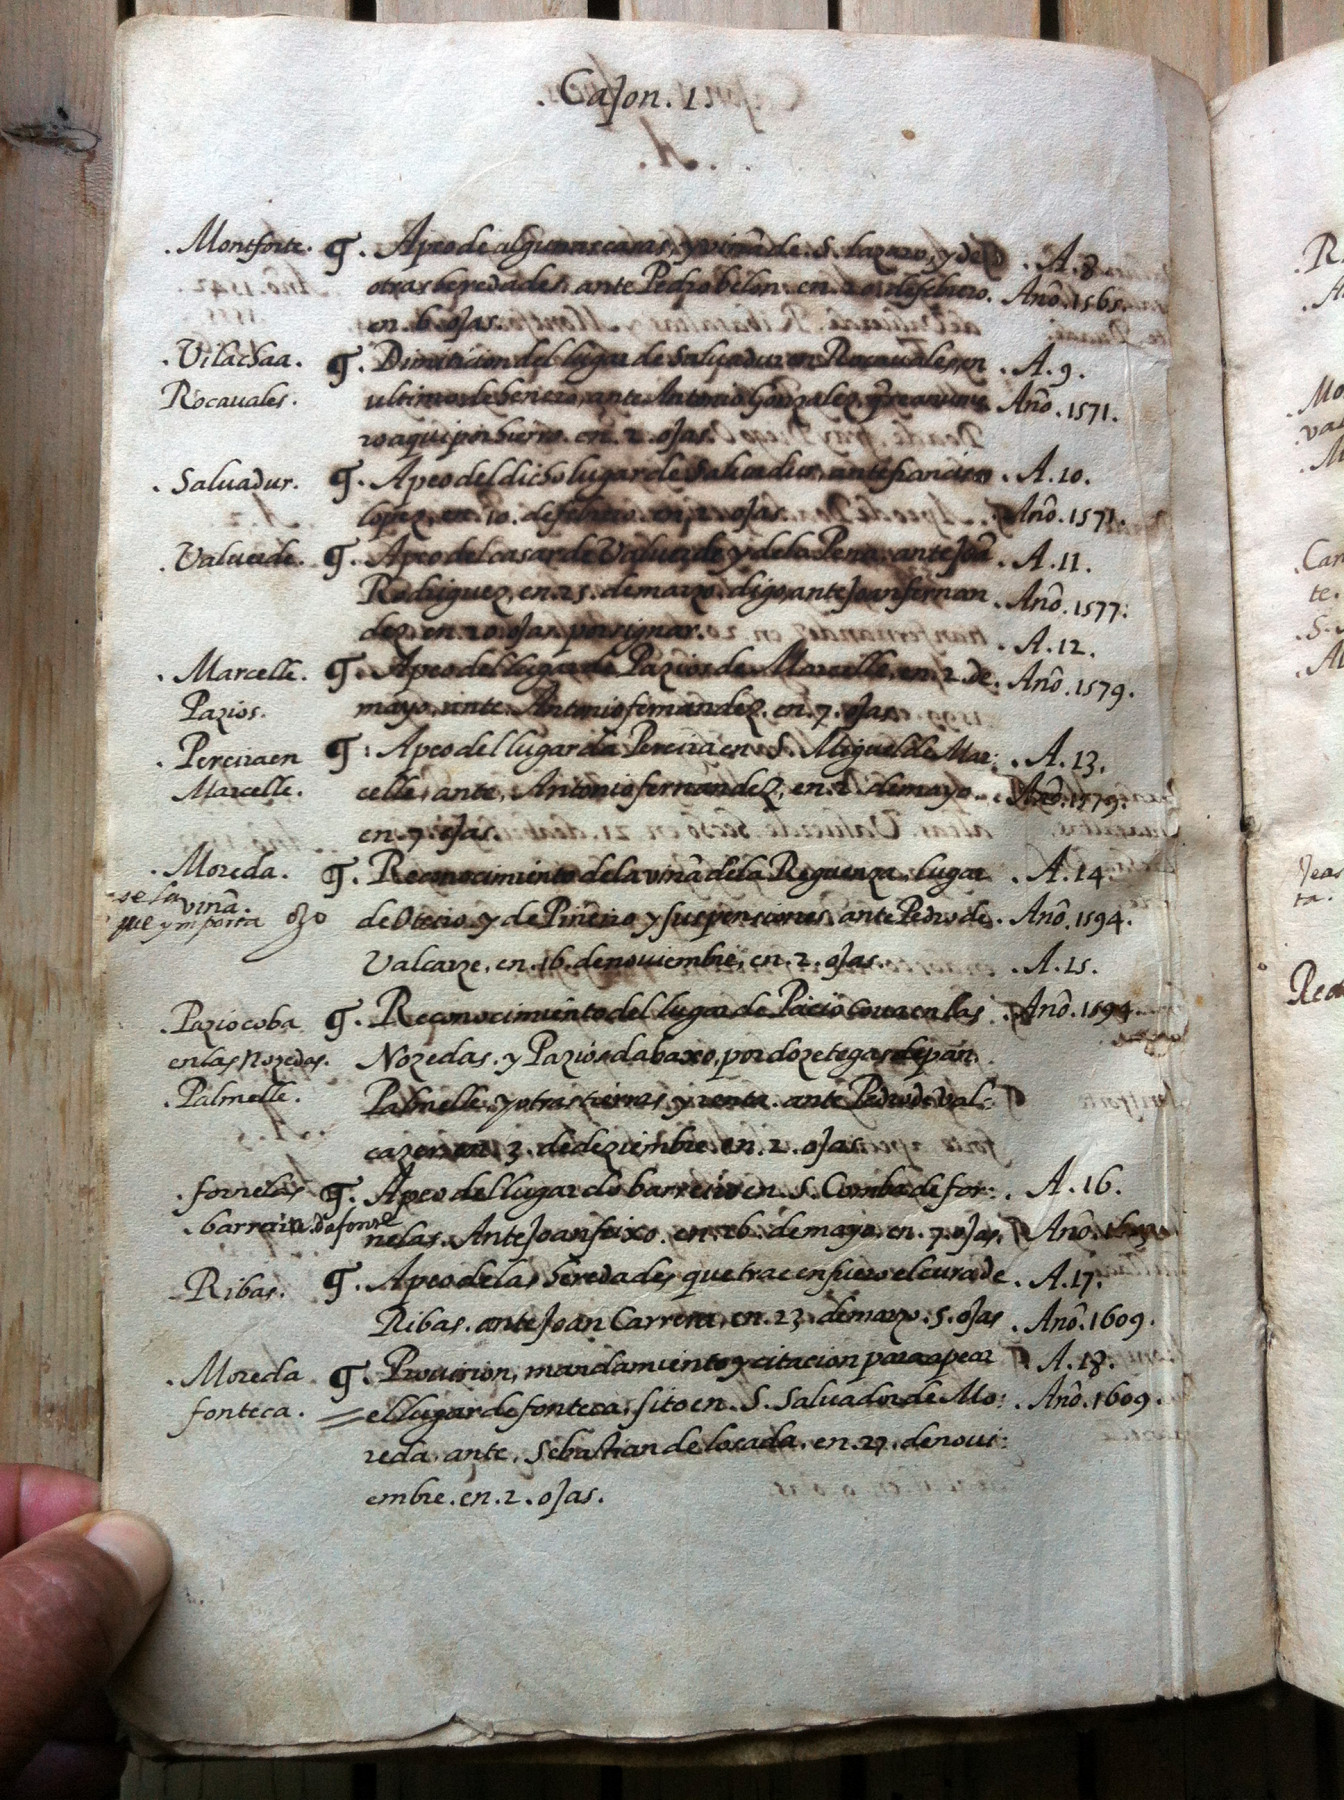 .Cajon. 1.
.Montforte. g. Apeo de algunas casas, y viña de. S. lazaro, y de . A. 8
otras heredades, ante Pedro belon. en. 20. de febrero. Año. 1565.
en. 6. ojas.
.Vilachaa. g. Dimiticion del lugar de Saluadur en Rocauales, en . A. 9.
Rocauales. ultimo de henero, ante Antonio Gonzalez. Año. 1571.
ro aqui por hierro. en. 2. ojas.
.Saluadur. g. Apeo del dicho lugar de Saluadur, ante francisco . A. 10.
lopez, en. 10. de febrero. en, 2. ojas. Año. 1571.
.Valuerde. g. Apeo del casar de Valuerde y de la Pena. ante Joã . A. 11.
Rodriguez, en. 25. de marzo. digo, ante Joan fernan . Año. 1577.
dez. en. 20. ojas. por signar. . A. 12.
.Marcelle. g. Apeo del lugar de Pazios de Marcelle. en. 2. de . Año. 1579.
Pazios. mayo. ante. Antonio fernandez. en. 7. ojas.
.Pereira en g. Apeo del lugar da Pereira en S. Miguel de Mar: . A. 13.
Marcelle. celle, ante, Antonio fernandez, en. 2. de mayo. . Año. 1579.
en. 7. ojas.
.Moreda. g. Reconocimiento de la viña de la Reguenga. lugar . A. 14.
se la viña.
que ymporta de Oterio. y de Piñeiro y sus pensiones. ante Pedro de . Año. 1594.
Valcarze. en. 16. de nouiembre, en. 2. ojas. . A. 15.
.Paziocoba g. Reconocimiento del lugar de Pacio Coua en las . Año. 1594.
en las Nozedas. Nozedas. y Pazios dabaxo, por doze tegas de pan.
.Palmelle. Palmelle. y otras tierras y renta. ante Pedro de Val:
cazer en 3. de deziembre. en. 2. ojas.
.fornelas g. Apeo del lugar do barreiro en. S. Comba de for: . A. 16.
.barreiro. nelas. Ante Joan feixo. en. 26. de mayo. en. 7. ojas. Año.
.Ribas. g. Apeo de las heredades que trae en fuero el cura de . A. 17.
Ribas. ante Joan Carrera, en. 23. de marzo. 5. ojas . Año. 1609.
.Moreda g. Prouision, mandamiento y citacion para apear . A. 18.
fonteca. el lugar de fonteca, sito en. S. Saluador de Mo: . Año. 1609.
reda. ante. Sebastian de losada. en. 27. de noui:
embre. en. 2. ojas.